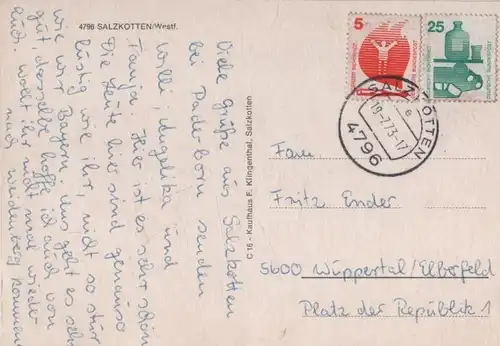 4796 SALZKOTTEN/Westf.
Viele grüße aus Salzkotten
bei Paderborn senden
Willi, Angelika und
Tanja. Hier ist es sehr schön
Die Leute hier sind genauso
lustig wie ihr, nicht so stur
wie wir Bayern. Uns geht es sehr
gut, dasselbe hoffe ich auch von
euch. Wollt ihr nicht mal wieder
nach Weidenberg kommen
C 16 - Kaufhaus F. Klingenthal, Salzkotten
5
25
DEUTSCHE BUNDESPOST
SALZKOTTEN
e
19-7.73-17
4796
Fam
Fritz Ender
5600 Wuppertal/Elberfeld
Platz der Republik 1